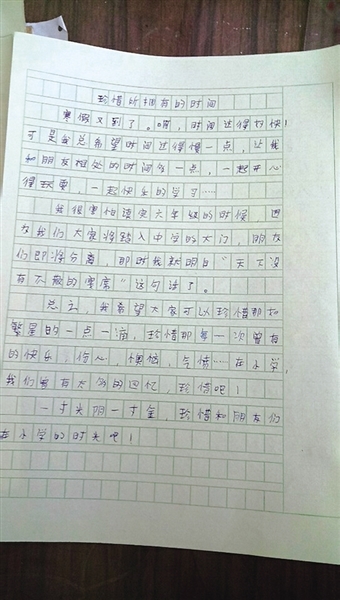 珍惜所拥有的时间
寒假又到了。唷，时间过得好快！
可是我总希望时间过得慢一点，让我
和朋友相处的时间多一点，一起开心
得玩耍，一起快乐的学习……
我很害怕读完六年级的时候，因
为我们大家将踏入中学的大门，朋友
们即将分离，那时我就明白“天下没
有不散的宴席”这句话了。
总之，我希望大家可以珍惜那如
繁星的一点一滴，珍惜那每一次曾有
的快乐，伤心，懊恼，气愤……在小学，
我们留有太多的回忆，珍惜吧！
一寸光阴一寸金，珍惜和朋友们
在小学的时光吧！